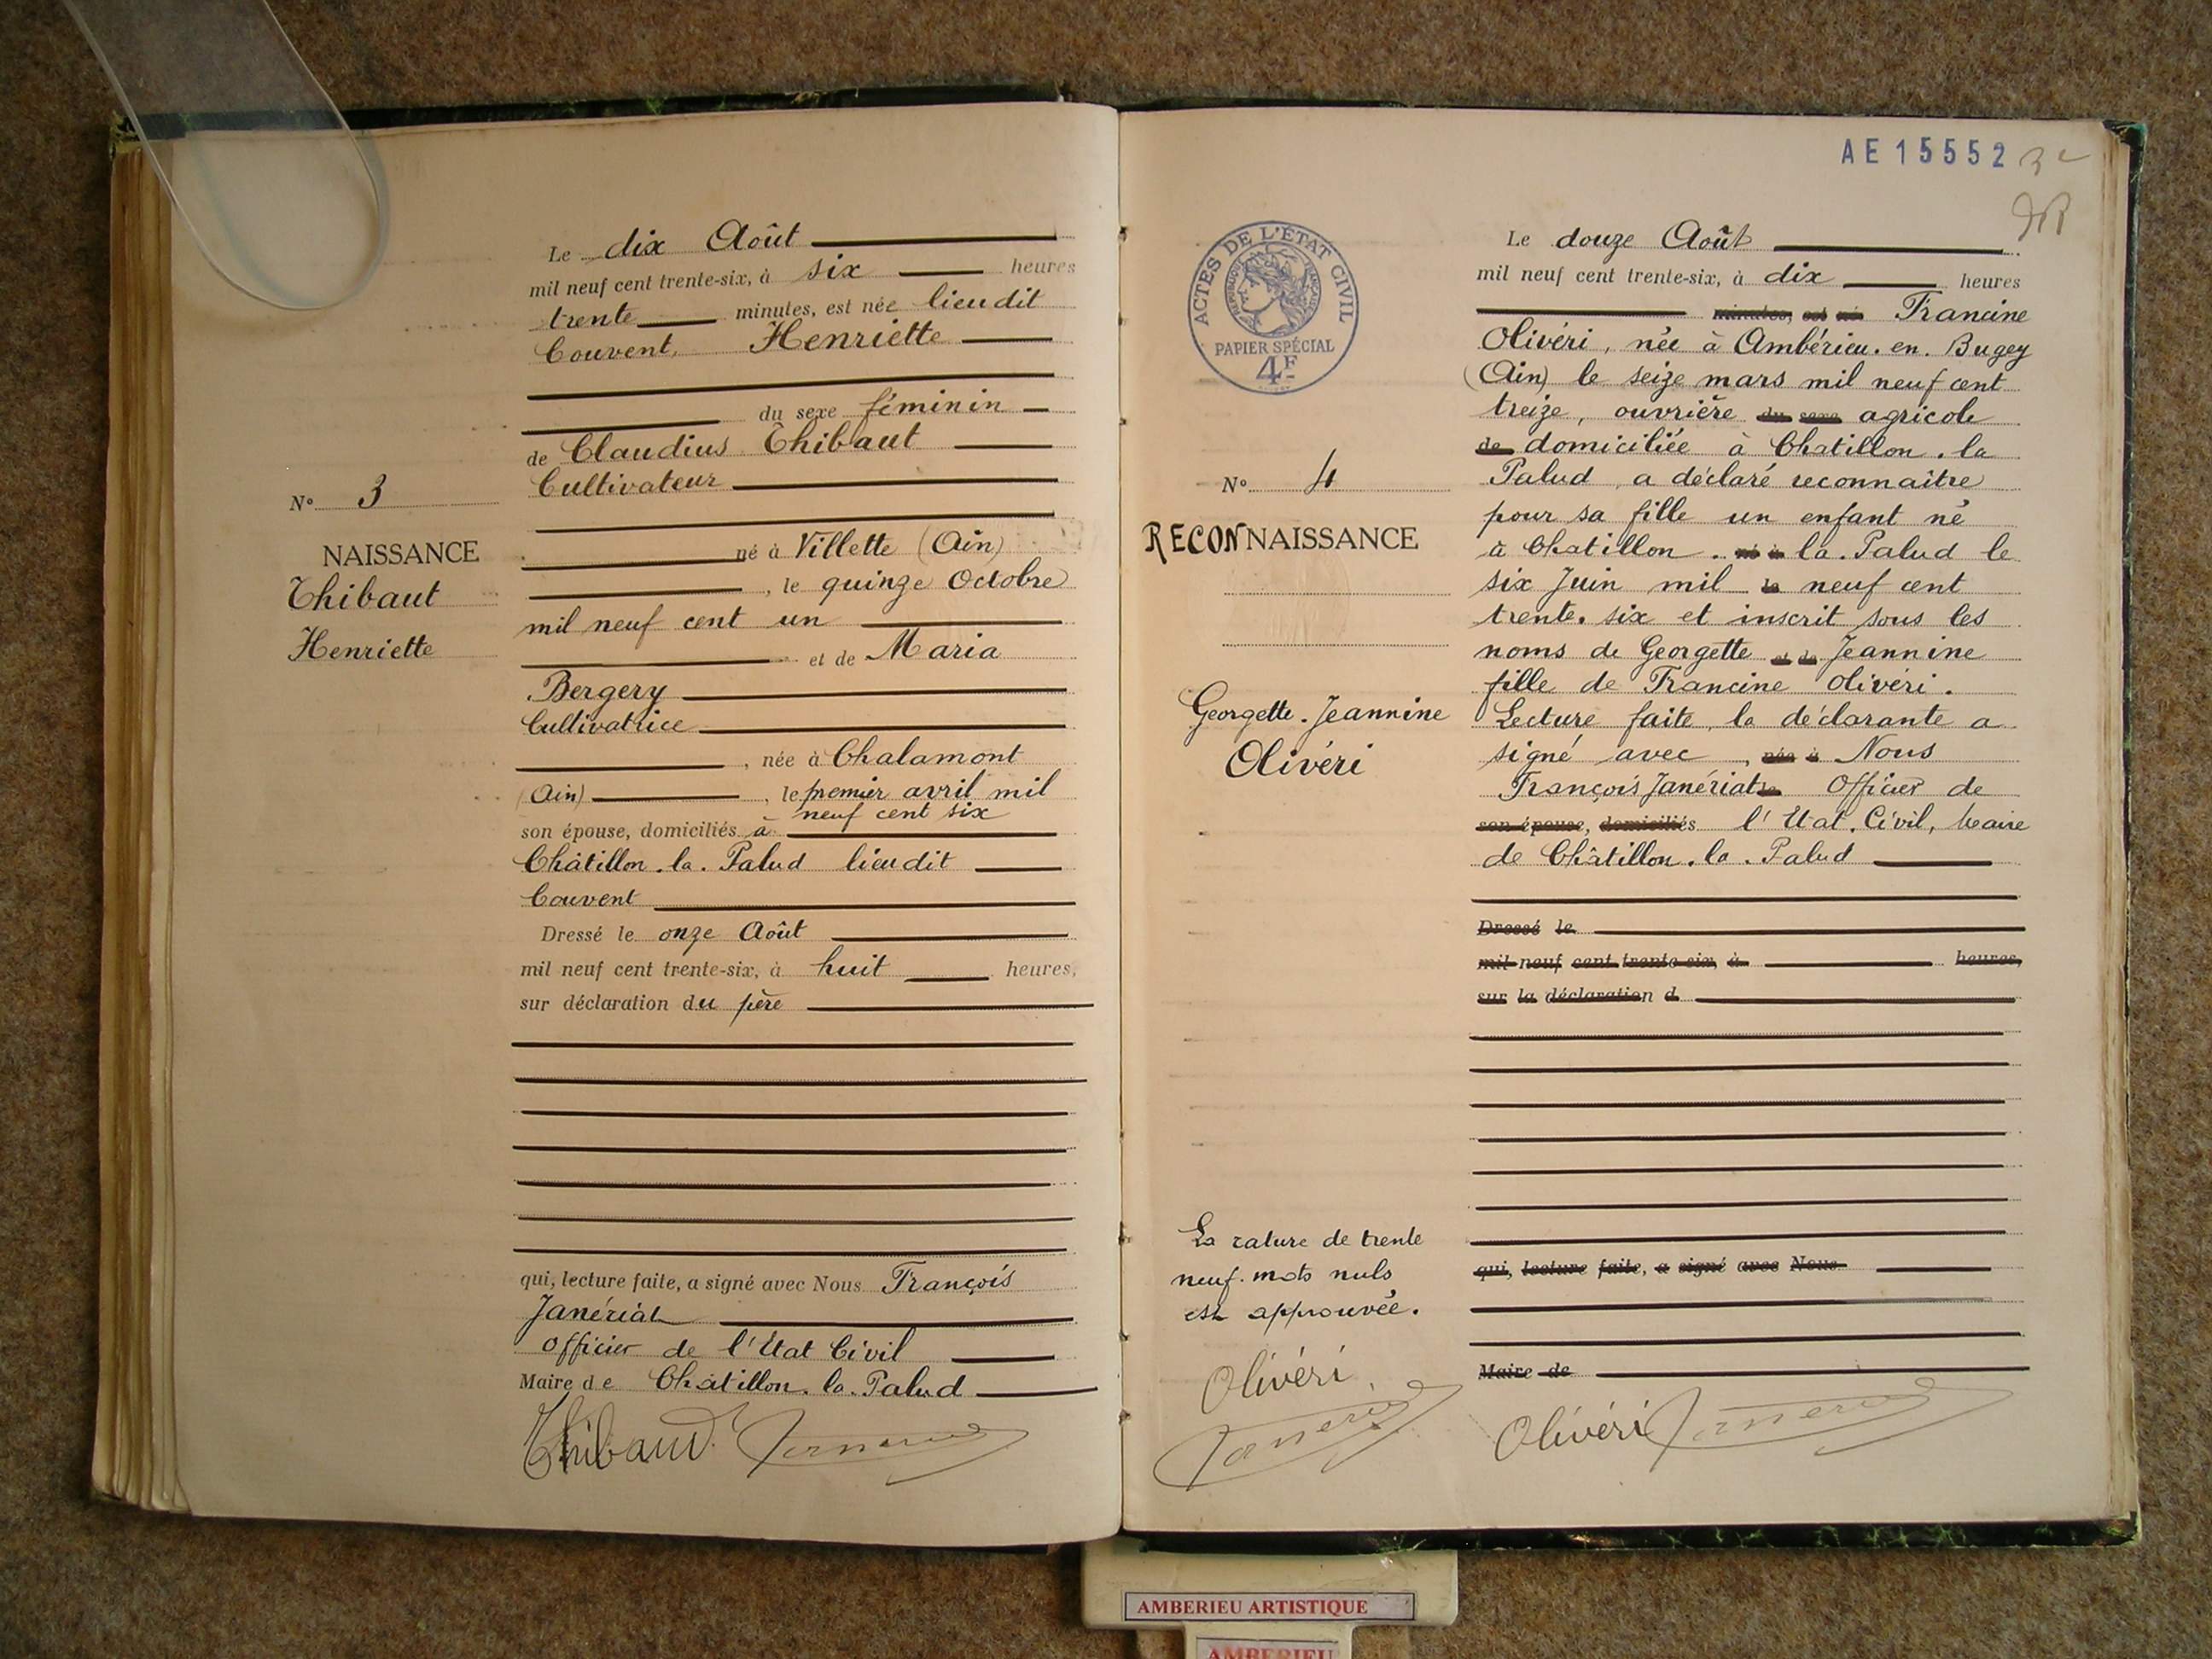 Le dix Août
mil neuf cent trente-six, à six heures
trente minutes, est née lieu dit
Couvent, Henriette
du sexe féminin
de Claudius Thibaut
Cultivateur
né à Villette (Ain)
, le quinze Octobre
mil neuf cent un
et de Maria
Bergery
Cultivatrice
, née à Chalamont
(Ain) , le premier avril mil
neuf cent six
son épouse, domiciliés à
Châtillon.la.Palud lieu dit
Couvent
Dressé le onze Août
mil neuf cent trente-six, à huit heures,
sur déclaration du père
qui, lecture faite, a signé avec Nous François
Janériat
Officier de l'Etat Civil
Maire de Châtillon.la.Palud
Thibaud
N° 3
NAISSANCE
Thibaut
Henriette
AE 15552
ACTES DE L'ÉTAT CIVIL
PAPIER SPÉCIAL
4F
N° 4
RECONNAISSANCE
Georgette.Jeannine
Olivéri
Le douze Août
mil neuf cent trente-six, à dix heures
minutes, est né Francine
Olivéri, née à Ambérieu.en.Bugey
(Ain) le seize mars mil neuf cent
treize, ouvrière du sexe agricole
de domiciliée à Chatillon.la
Palud, a déclaré reconnaître
pour sa fille un enfant né
à Chatillon. né à la.Palud le
six Juin mil le neuf cent
trente.six et inscrit sous les
noms de Georgette et de Jeannine
fille de Francine Olivéri.
Lecture faite, la déclarante a
signé avec , née à Nous
François Janériat le Officier de
son épouse, domiciliés l'Etat.Civil, Maire
de Châtillon.la.Palud
Dressé le
mil neuf cent trente-six, à heures,
sur la déclaration d
qui, lecture faite, a signé avec Nous
Maire de
Olivéri
La rature de trente
neuf.mots nuls
est approuvée.
Olivéri
AMBERIEU ARTISTIQUE
AMBERIEU